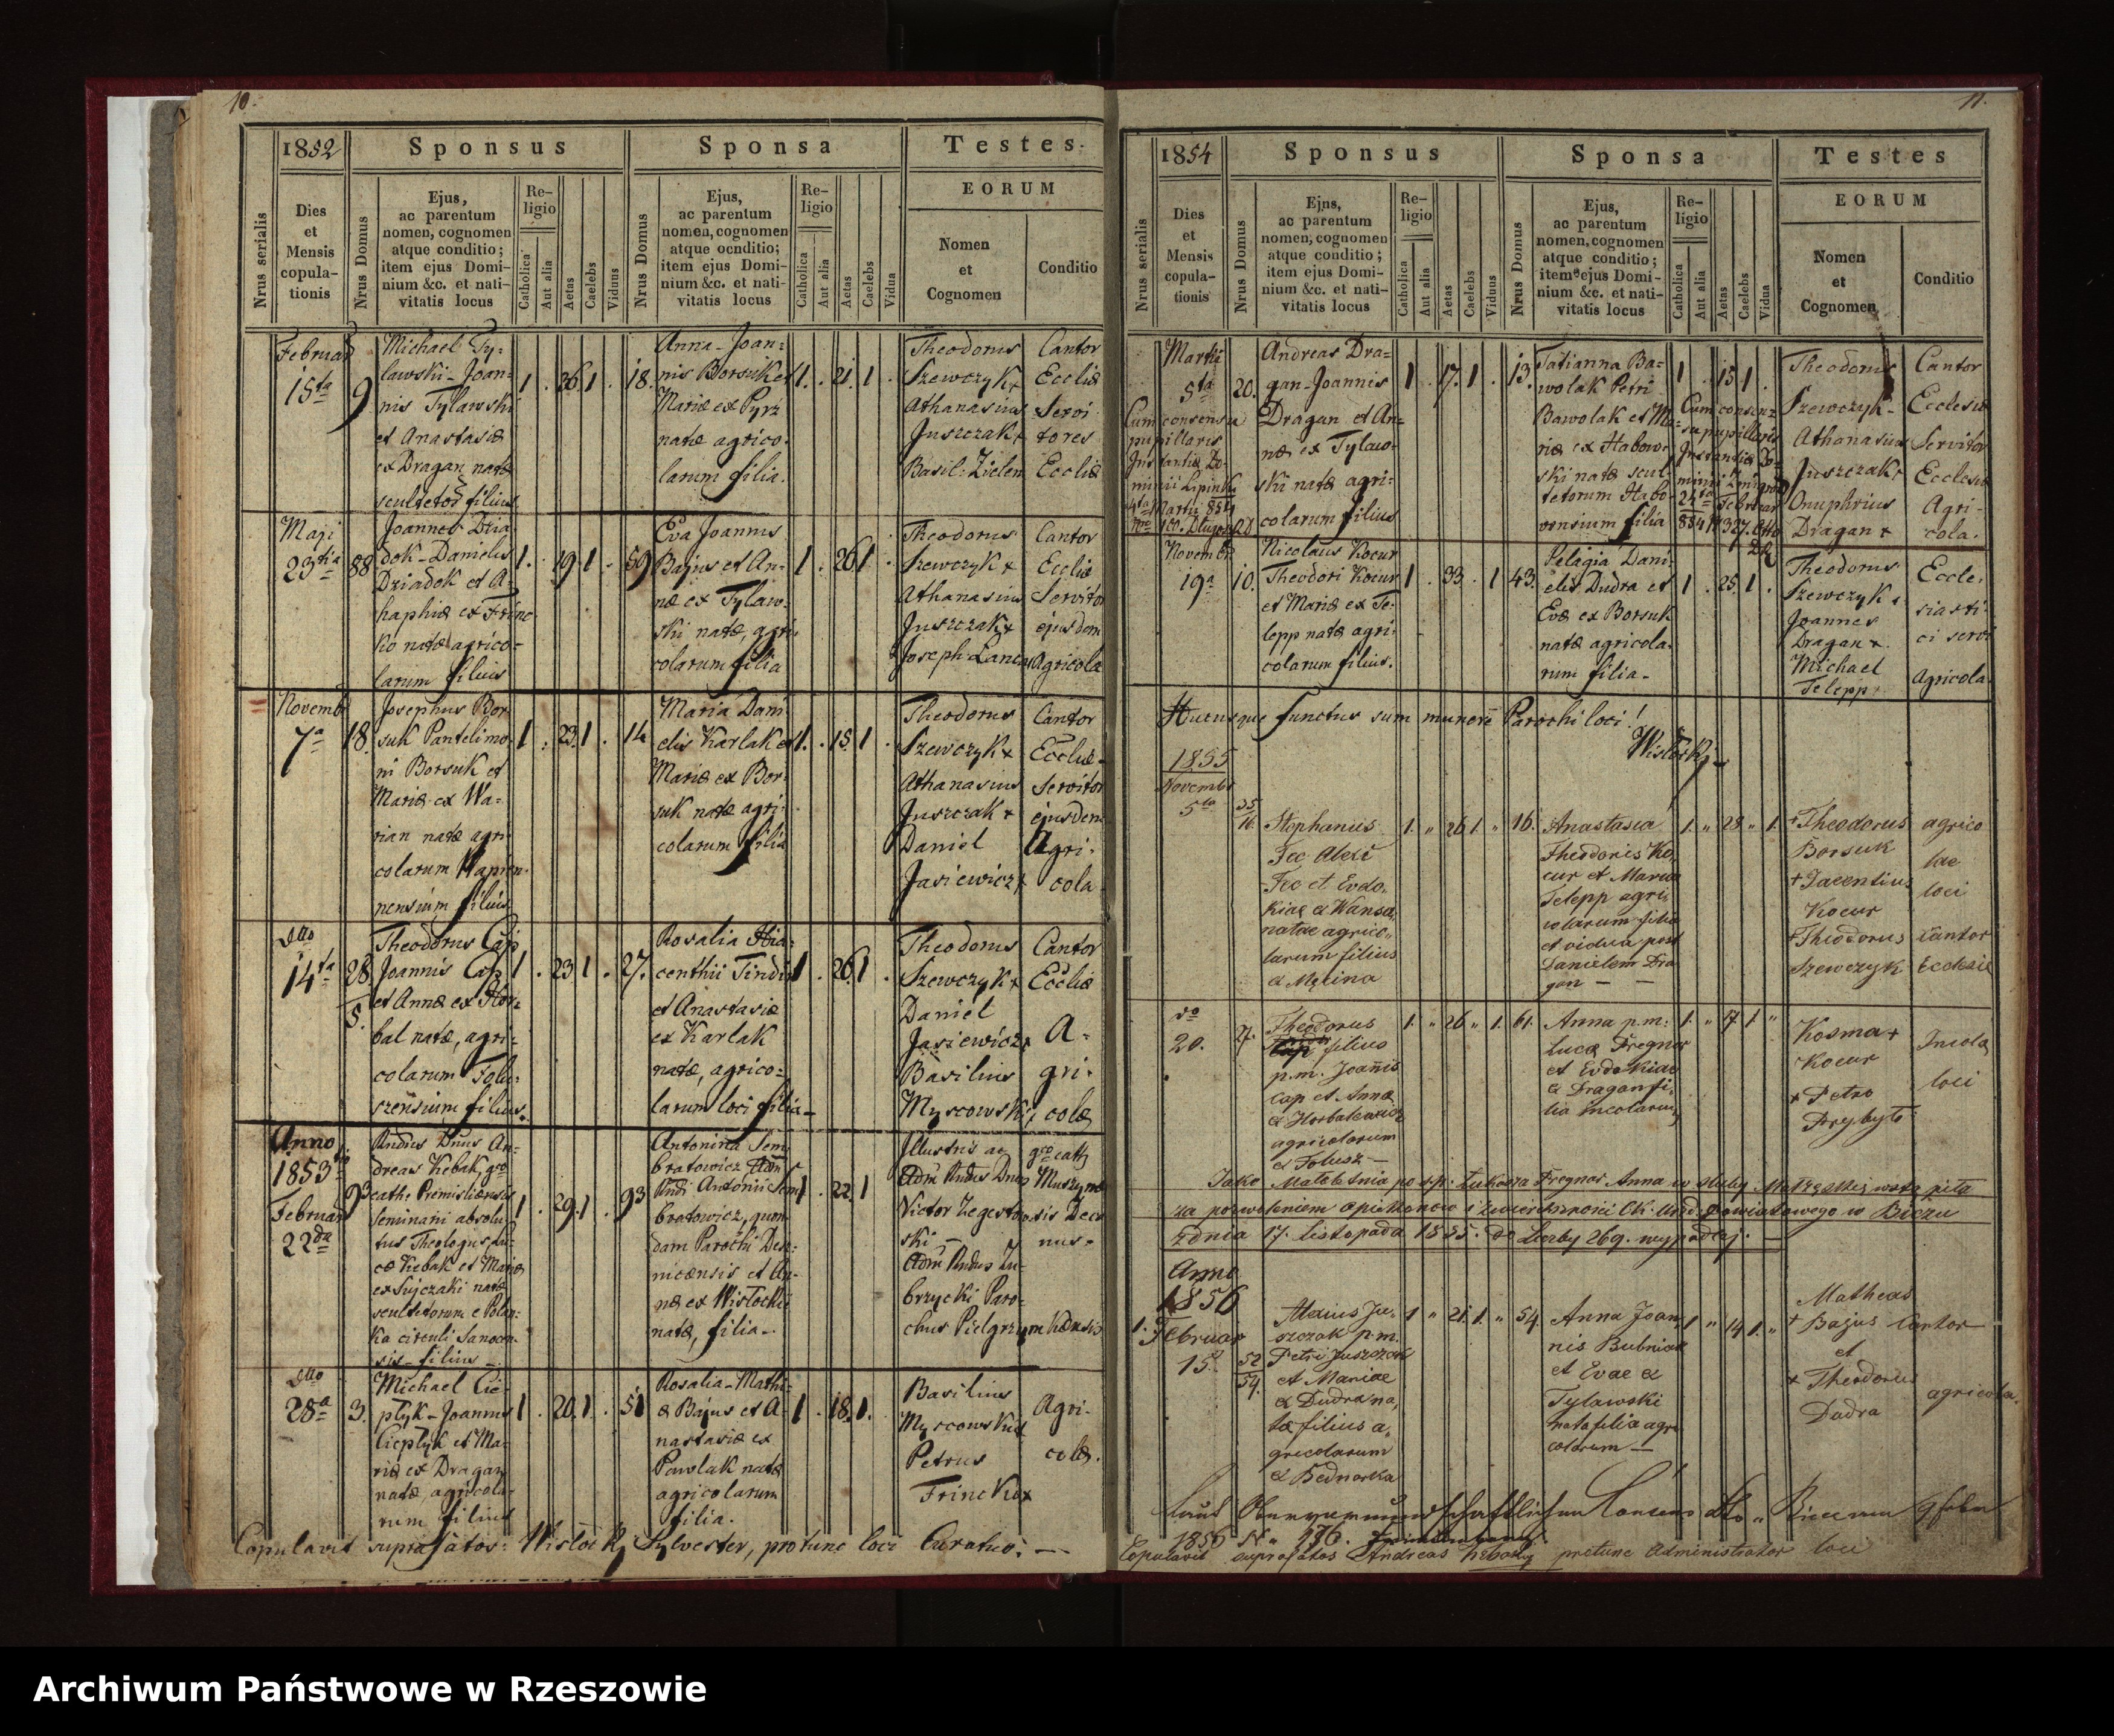 10.
1852
Sponsus
Sponsa
Testes.
EORUM
Nrus serialis
Dies
et
Mensis
copula-
tionis
Nrus Domus
Ejus,
ac parentum
nomen, cognomen
atque conditio;
item ejus Domi-
nium &c. et nati-
vitatis locus
Re-
ligio
Catholica
Aut alia
Aetas
Caelebs
Viduus
Nrus Domus
Ejus,
ac parentum
nomen, cognomen
atque ocnditio;
item ejus Domi-
nium &c. et nati-
vitatis locus
Re-
ligio
Catholica
Aut alia
Aetas
Caelebs
Vidua
Nomen
et
Cognomen
Conditio
Februar
15ta
9
Michael Ty-
lawski - Joan-
nis Tylawski
et Anastasiæ
ex Dragan natæ
filius
1 . 26. 1 .
18.
Anna - Joan-
nis Borsuk et
Mariæ ex Pyrz
natæ agrico-
larum filia.
1. . 21. 1 .
Theodorus
Szewczyk +
Athanasius
Juszczak +
Basil: Zielen
Cantor
Ecclæ
Servi
tores
Ecclæ
Maji
23tia
88
Joannes Dzia
dok - Danielis
Dziadok et A-
haphiæ ex Frinc
ko natæ agrico-
larum filius
1. . 19. 1 .
59
Eva Joannis
Bajus et An-
næ ex Tylaw-
ski natæ, agri-
colarum filia
1 . 26. 1 .
Theodorus
Szewczyk +
Athanasius
Juszczak +
Joseph
Cantor
Ecclæ
Servitor
ejusdem
Agricola
Novembr
7a
18
Josephus Bor-
suk Pantelimo-
ni Borsuk et
Mariæ ex Wa-
rian natæ agri-
colarum
filius
1 . 23. 1 .
14
Maria Dani
elis Karlak et
Mariæ ex Bor-
suk natæ agri-
colarum filia
1. . 18. 1 .
Theodorus
Szewczyk +
Athanasius
Juszczak +
Daniel
Jasiewicz +
Cantor
Ecclæ
Servitor
ejusdem
Agri-
cola
dtto
14ta
28
5.
Theodorus Cap
Joannis Cap
et Annæ ex Hor-
bal natæ, agri-
colarum Folu-
szensium filius.
1 . 23. 1 .
27.
Rosalia Hia-
centhii
et Anastasiæ
ex Karlak
natæ, agrico-
larum loci filia -
1 . 26. 1 .
Theodorus
Szewczyk +
Daniel
Jasiewicz +
Basilius
Myscowski +
Cantor
Ecclæ
A-
gri-
colæ
Anno
1853tio
Februar
22da
93
Rndus Dnus An-
dreas Kebak, gro
cath. Premisliensis
Seminarii absolu-
tus Theologus, Lu-
cæ Kebak et Mariæ
natæ
scultetorum e Polan-
ka circuli Sanocen-
sis - filius -
1 . 29. 1 .
93
Antonina Sem
bratowicz Adm
Rndi Antonii Sem-
bratowicz, quon-
dam Parochi Desz-
nicensis et An-
næ ex Wisłocki
natæ, filia -.
1 . 22. 1
Illustris ac
Adm Rndus Dnus
Victor Żegestow
ski -
Adm Rndus Zu-
brzycki Paro-
chus Pielgrzymkensis
gro cath
Muszyn
ensis Deca
nus.
dtto
28a
3.
Michael Cie-
płyk - Joannis
Ciepłyk et Ma-
riæ ex Dragan
natæ, agricola-
rum filius
1 . 20. 1 .
51
Rosalia - Mathi-
æ Bajus et A-
nastasiæ ex
Pawlak natæ
agricolarum
filia.
1 . 18. 1.
Basilius
Myscowski +
Petrus
Frincko +
Agri-
colæ.
Copulavit suprafatos: Wisłocky Sylvester, protunc loci Curatus. -
11.
1854
Sponsus
Sponsa
Testes
EORUM
Nrus serialis
Dies
et
Mensis
copula-
tionis
Nrus Domus
Ejns,
ac parentum
nomen, cognomen
atque conditio;
item ejus Domi-
nium &c. et nati-
vitatis locus
Re-
ligio
Catholica
Aut alia
Aetas
Caelebs
Viduus
Nrus Domus
Ejus,
ac parentum
nomen, cognomen
atque conditio;
item ejus Domi-
nium &c. et nati-
vitatis locus
Re-
ligio
Catholica
Aut alia
Aetas
Caelebs
Vidua
Nomen
et
Cognomen
Conditio
Martii
5ta
Cum consensu
pupillaris
Instantiæ Do-
minii Lipinki
4ta Martii 854
20.
Andreas Dra-
gan - Joannis
Dragan et An-
næ ex Tylaw-
ski natæ agri-
colarum filius
1 . 17. 1 .
13.
Tatianna Ba-
wolak Petri
Bawolak et Ma-
riæ ex Habow-
ski natæ scul-
tetorum Habo-
vensium filia
1 . 15 1 .
Cum consen-
su pupillaris
Instantiæ Do-
minii Żmigrod
24ta Februar
Theodorus
Szewczyk -
Athanasius
Juszczak +
Onuphrius
Dragan +
Cantor
Ecclesiæ
Servitor
Ecclesiæ
Agri-
cola.
Novembr
19a
10.
Nicolaus Kocur
Theodori Kocur
et Mariæ ex Te-
lepp natæ agri-
colarum filius.
1 . 33. . 1
43.
Pelagia Dani-
elis Dudra et
Evæ ex Borsuk
natæ agricola-
rum filia -
1 . 25. 1 .
Theodorus
Szewczyk +
Joannes
Dragan +.
Michael
Telepp +
Eccle-
siasti
ci servi
Agricola
Hucusque functus sum munere Parochi loci!
Wisłocky
1855
Novembr
5ta
35/16
Stephanus
Fec Alexi
Fec et Evdo-
kiae ex Wansa,
natae agrico-
larum filius
ex Męcina
1. " 26 1. "
16.
Anastasia
Theodoris Ko-
cur et Maria
Telepp agri-
colarum filia
et vidua post
Danielem Dra
gan -
1. " 28 " 1.
+ Theodorus
Borsuk
+ Jacentius
Kocur
+ Theodorus
Szewczyk
agrico
lae
loci
Cantor
Ecclesiæ
do
20.
7.
Theodorus
filius
p.m. Joannis
Cap et Annæ
ex Horbalewicz
agricolarum
ex Folusz -
1. " 26 " 1.
61.
Anna p.m.
Lucæ Fregnor
et Evdokiae
ex Dragan fi-
lia incolarum
1. " 17 1 "
Kosma +
Kocur
+ Petro
Przybyło
Incolæ
loci
Jako Małoletnia po ś.p. Łukasza Fregnor Anna w śluby Małżeńskie wstąpiła
za pozwoleniem opiekunów i zwierzchności Ck. Urzd. powiatowego w Bieczu
z dnia 17. listopada 1855. do Liczby 269. wypadłej. -
Anno
1856
1. Februar
15.
52/54.
Alexius Ju-
szczak p.m.
Petri Juszczak
et Mariae
ex Dudra na-
tæ filius a-
gricolarum
ex Bednarka
1 " 21. 1. "
54.
Anna Joan-
nis Bubniak
et Evae ex
Tylawski
nata filia agri
colarum -
1 " 14 1. "
Matheas
+ Bajus
et
+ Theodorus
Dudra
Cantor
agricola
Laut Obervormundschaftlichen Consens dto
1856
Copulavit suprafatos Andreas protunc administrator loci
Archiwum Państwowe w Rzeszowie